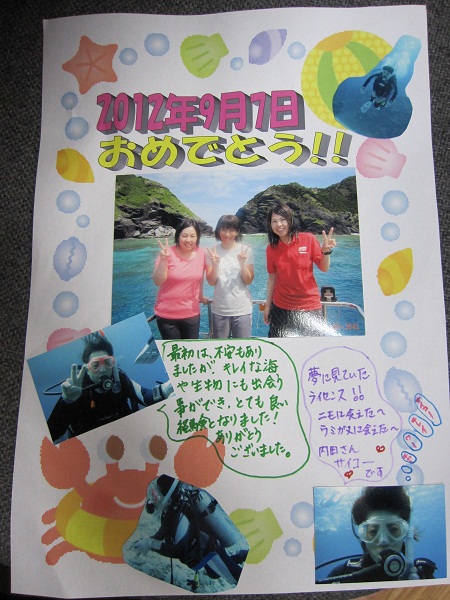 2012年9月7日
おめでとう!!
最初は、不安もあり
ましたが キレイな海
や生物にも出会う
事ができ、とても良い
経験となりました!
ありがとう
ございました。
夢に見ていた
ライセンス!!
ニモに会えたへ
ウミガメに会えたへ
内田さん
サイコー
です